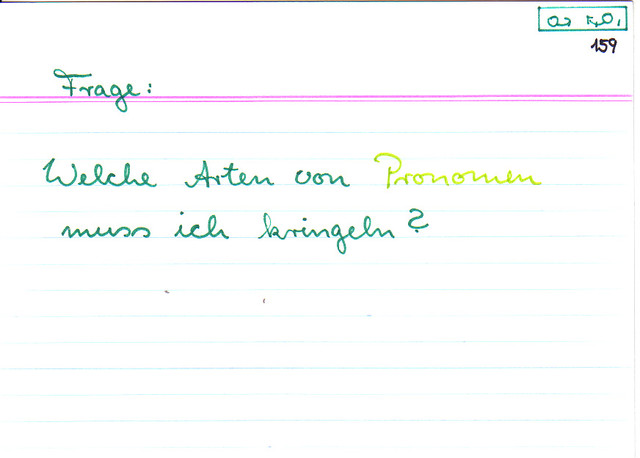 159
Frage:
Welche Arten von Pronomen
muss ich kringeln?